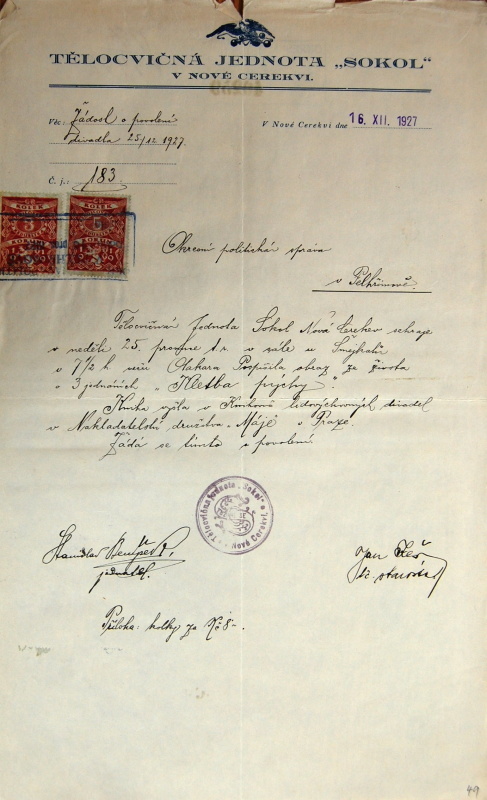 TĚLOCVIČNÁ JEDNOTA „SOKOL“
V NOVÉ CEREKVI.
Věc: Žádost o povolení
divadla 25/12 1927.
V Nové Cerekvi dne 16. XII. 1927
Č. j.: 183.
KOLEK
KOLEK
Okresní politická správa
v Pelhřimově.
Tělocvičná Jednota Sokol Nová Cerekev sehraje
v neděli 25. prosince t.r. v sále u Smejkalů
o 7 1/2 h večer Otakara Pospíšila obraz ze života
o 3 jednáních „Kletba pýchy“.
Kniha vyšla v Knihově lidovýchovných divadel
v Nakladatelství družstva Máje v Praze.
Žádá se tímto o povolení.
Tělocvičná jednota „Sokol“ v Nové Cerekvi.
Stanislav
jednatel.
Jan
t.č. starosta
Příloha: kolky za Kč 8-.
49